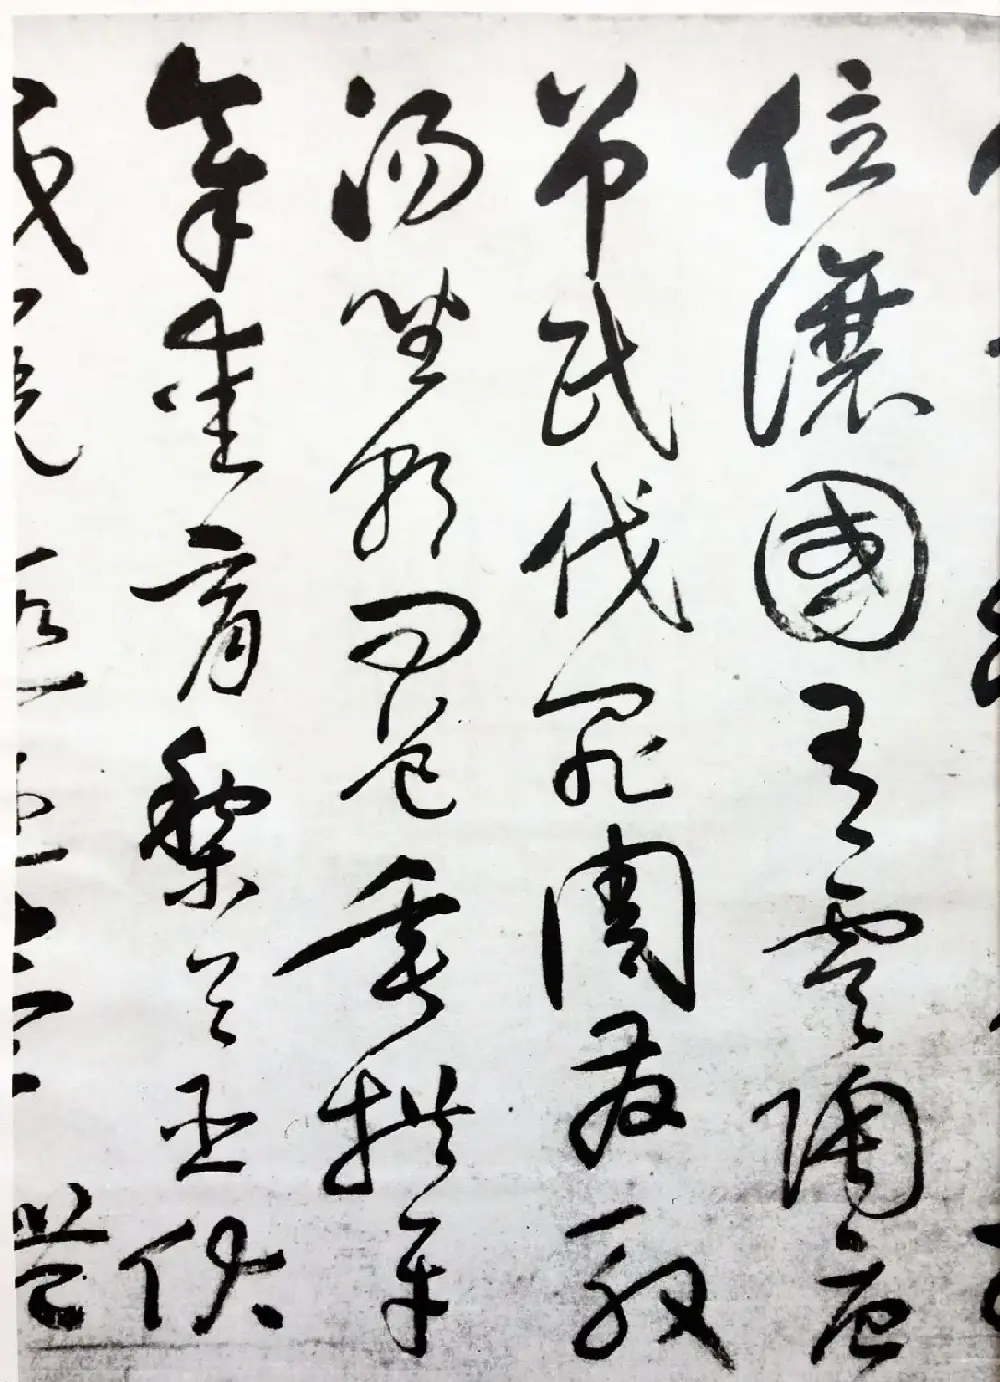 位讓國有虞陶唐
弔民伐罪周發殷
湯坐朝問道垂拱平
章愛育黎首臣伏
戎羌遐邇壹體